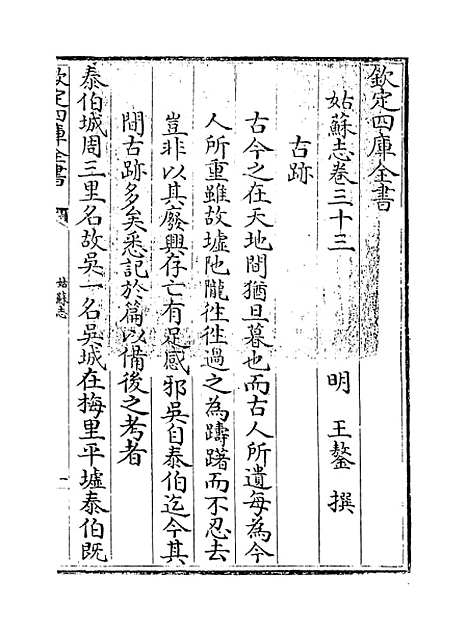 欽定四庫全書
姑蘇志卷三十三
明 王鏊 撰
古跡
古今之在天地間猶旦暮也而古人所遺每為今
人所重雖故墟陁隴徃徃過之為躊躇而不忍去
豈非以其廢興存亡有足感邪吳自泰伯迄今其
間古跡多矣悉記於篇以備後之考者
泰伯城周三里名故吳一名吳城在梅里平墟泰伯既
欽定四庫全書
姑蘇志
一